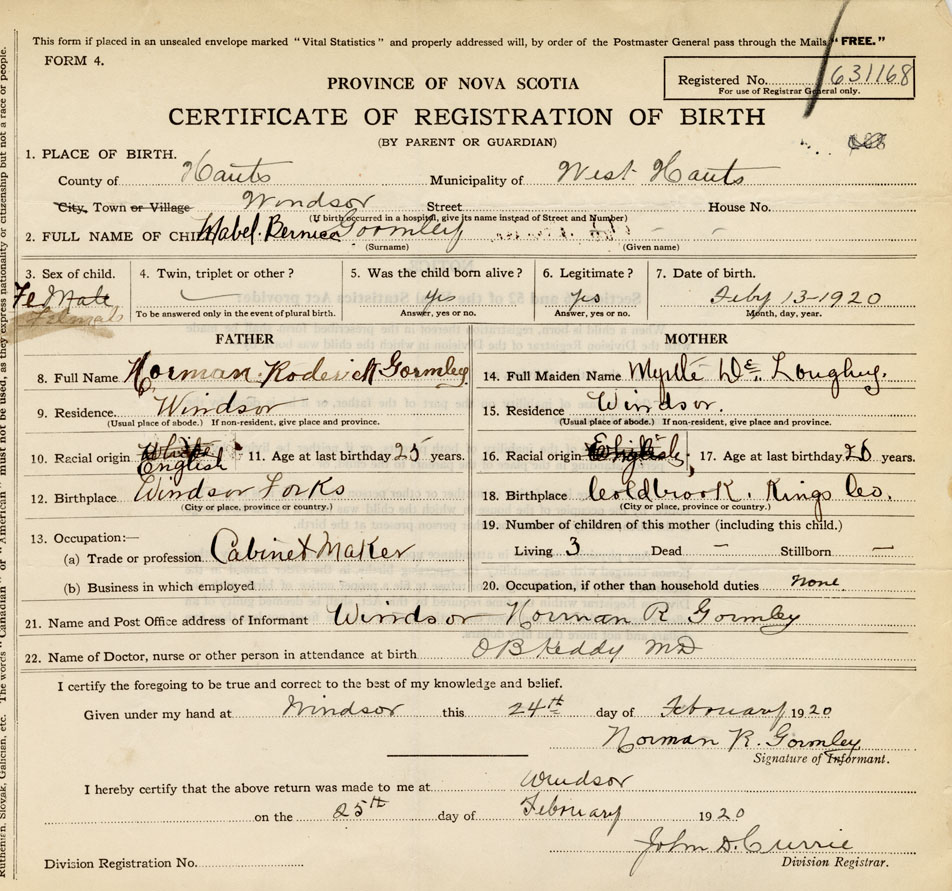 This form if placed in an unsealed envelope marked "Vital Statistics" and properly addressed will, by order of the Postmaster General pass through the Mails "FREE."
FORM 4.
Registered No. 631168
For use of Registrar General only.
PROVINCE OF NOVA SCOTIA
CERTIFICATE OF REGISTRATION OF BIRTH
(BY PARENT OR GUARDIAN)
1. PLACE OF BIRTH.
County of Hants Municipality of West Hants
City, Town or Village Windsor Street House No.
(If birth occurred in a hospital, give its name instead of Street and Number)
2. FULL NAME OF CHILD Mabel Bernice Gormley
(Surname) (Given name)
3. Sex of child. 4. Twin, triplet or other? 5. Was the child born alive? 6. Legitimate? 7. Date of birth.
FeMale yes yes Feby 13-1920
Female To be answered only in the event of plural birth. Answer, yes or no. Answer, yes or no. Month, day, year.
FATHER MOTHER
8. Full Name Norman Roderick Gormley 14. Full Maiden Name Myrtle
9. Residence Windsor 15. Residence Windsor.
(Usual place of abode.) If non-resident, give place and province. (Usual place of abode.) If non-resident, give place and province.
10. Racial origin English 11. Age at last birthday 25 years. 16. Racial origin English, 17. Age at last birthday years.
12. Birthplace Windsor Forks 18. Birthplace Coldbrook. Kings Co.
(City or place, province or country.) (City or place, province or country.)
13. Occupation:— 19. Number of children of this mother (including this child.)
(a) Trade or profession Cabinet Maker Living 3 Dead — Stillborn —
(b) Business in which employed 20. Occupation, if other than household duties none
21. Name and Post Office address of Informant Windsor Norman R Gormley
22. Name of Doctor, nurse or other person in attendance at birth O B Keddy MD
I certify the foregoing to be true and correct to the best of my knowledge and belief.
Given under my hand at Windsor this 24th day of February 1920
Norman R. Gormley
Signature of Informant.
I hereby certify that the above return was made to me at Windsor
on the 25th day of February 1920
John D. Currie
Division Registration No. Division Registrar.
Ruthenian, Slovak, Galician, etc. The words "Canadian" or "American" must not be used, as they express nationality or citizenship but not a race or people.